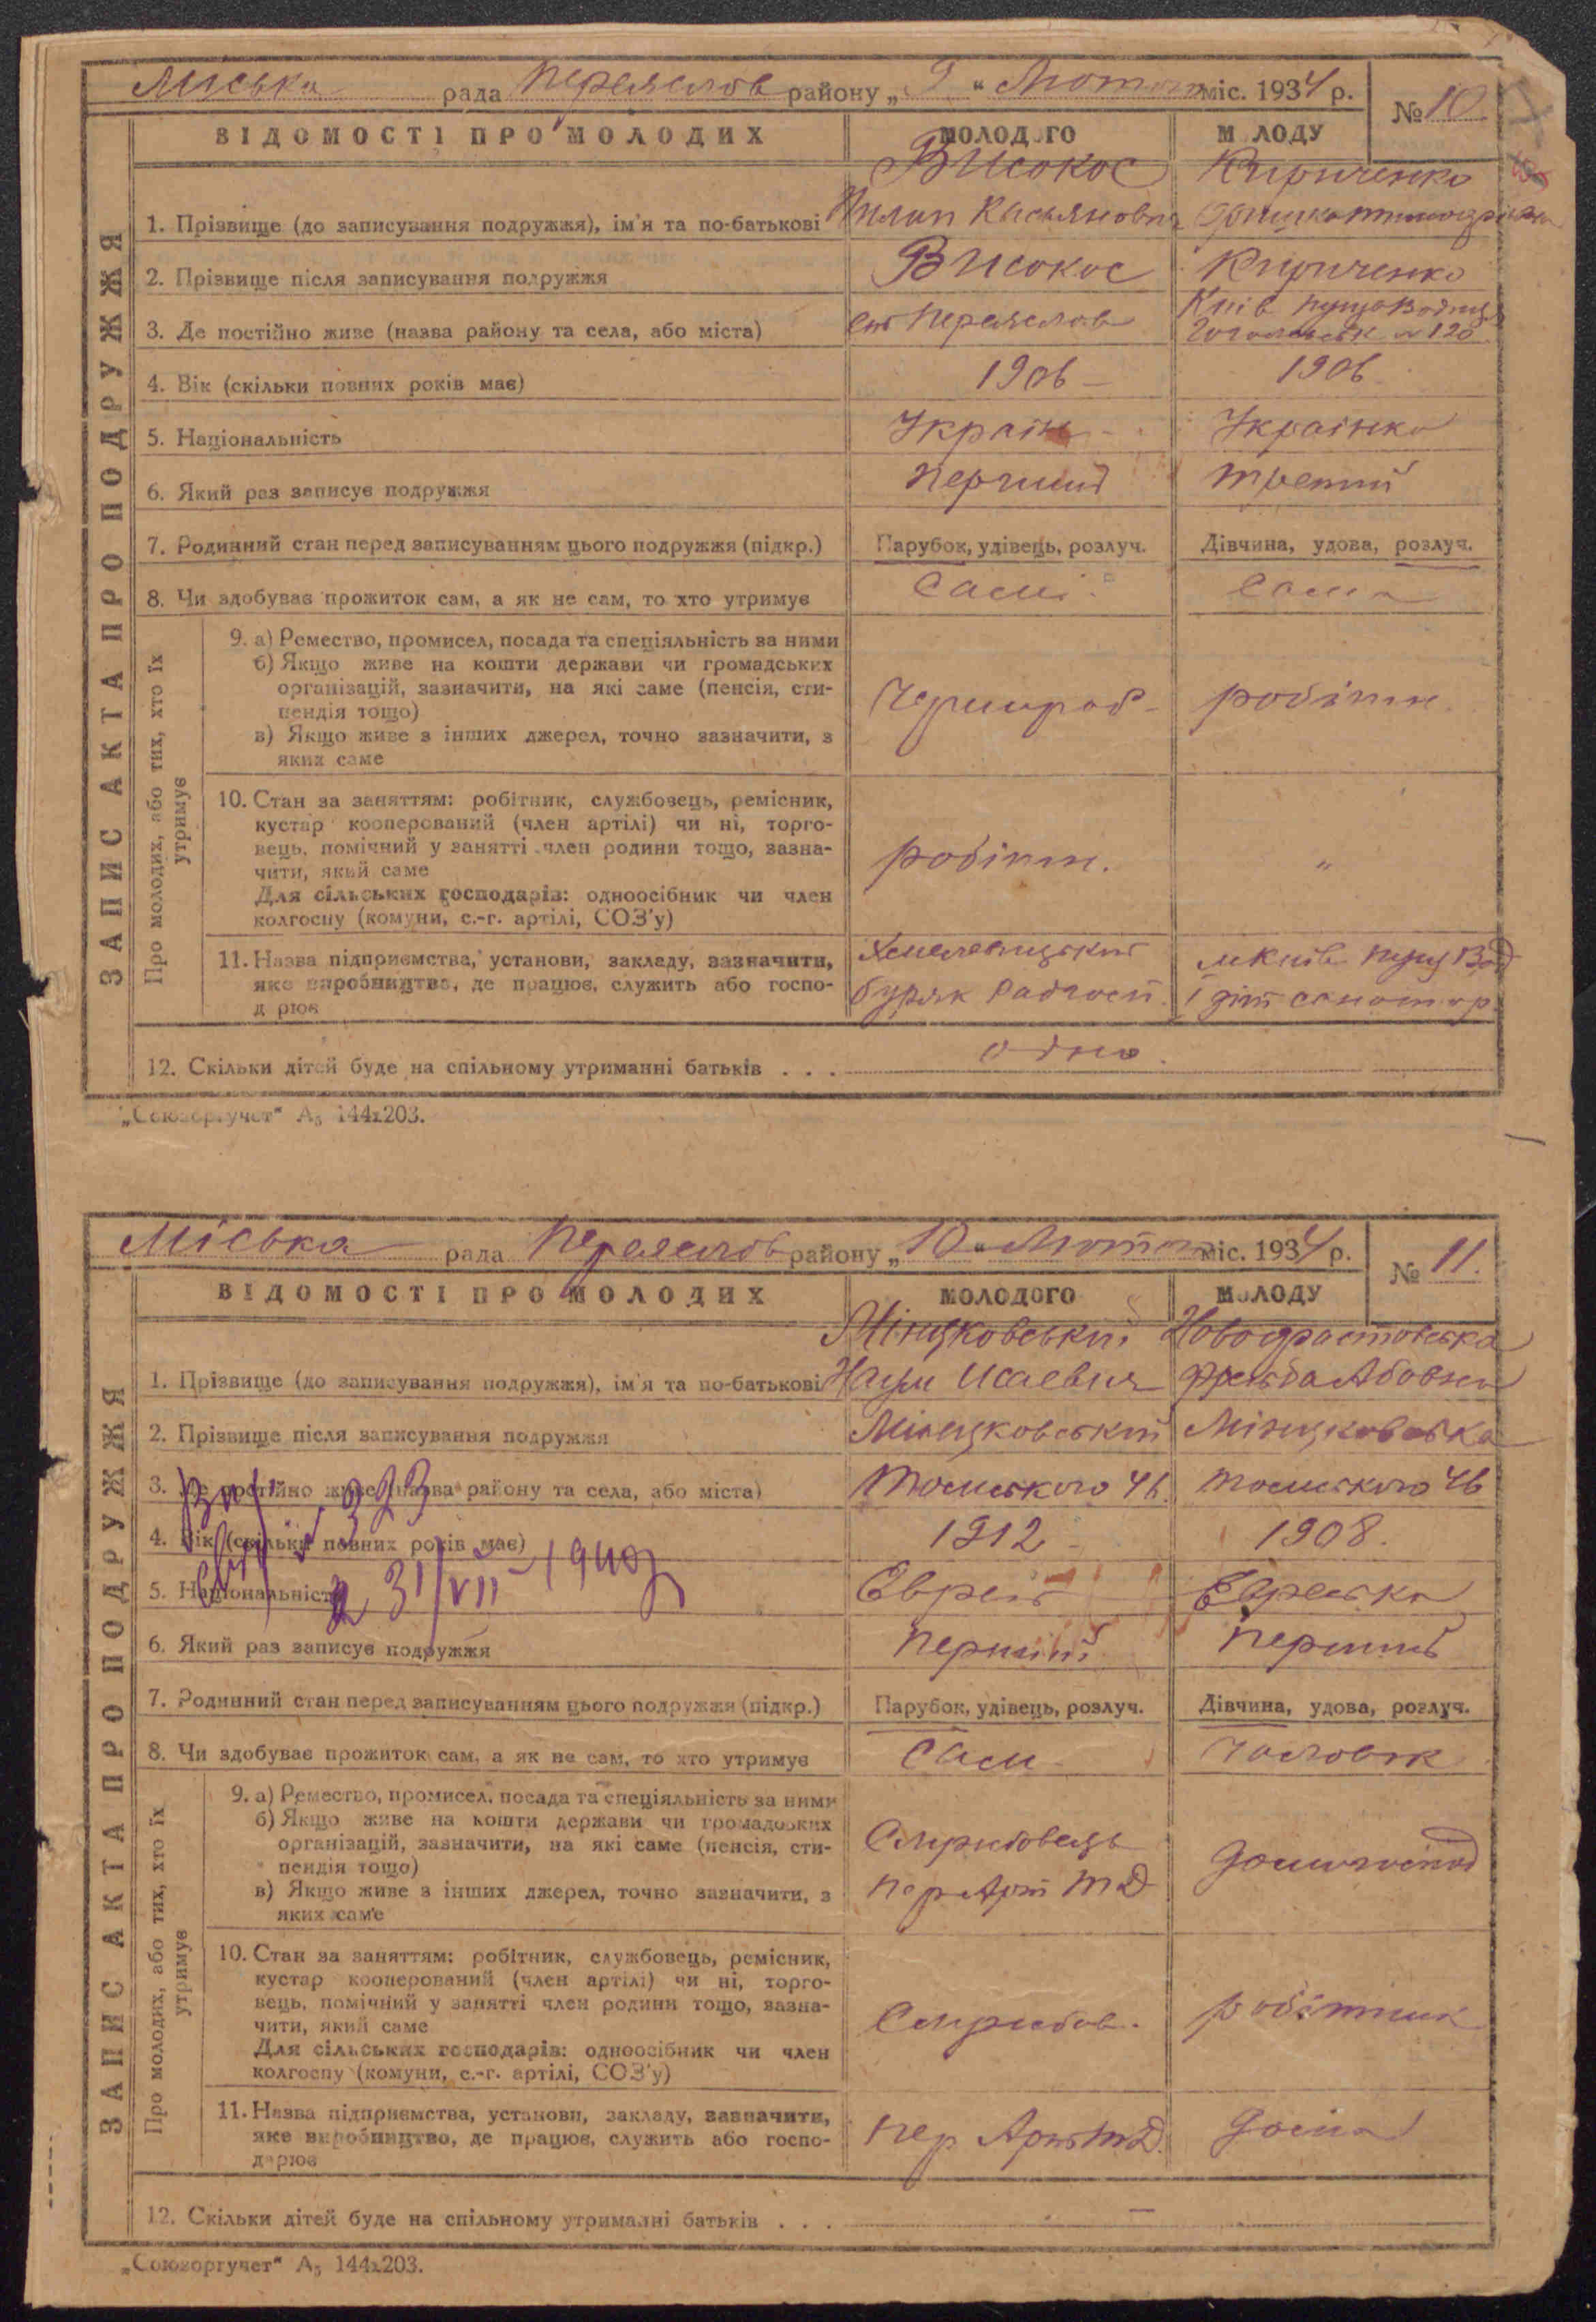 Міська рада Переяслов району „ 9 “ Лютого міс. 1934 р.
№ 10
ВІДОМОСТІ ПРО МОЛОДИХ
МОЛОДОГО
МОЛОДУ
ЗАПИС АКТА ПРО ПОДРУЖЖЯ
1. Прізвище (до записування подружжя), ім'я та по-батькові
Високос
Пилип Касьянович
Кириченко
2. Прізвище після записування подружжя
Високос
Кириченко
3. Де постійно живе (назва району та села, або міста)
Переяслов
Київ Пуща Водиця
№ 120
4. Вік (скільки повних років має)
1906 –
1906
5. Національність
Україн
Українка
6. Який раз записує подружжя
Перший
Третий
7. Родинний стан перед записуванням цього подружжя (підкр.)
Парубок, удівець, розлуч.
Дівчина, удова, розлуч.
8. Чи здобував прожиток сам, а як не сам, то хто утримує
Сам
Сама
Про молодих, або тих, хто їх утримує
9. а) Ремество, промисел, посада та спеціяльність за ними
б) Якщо живе на кошти держави чи громадських
організацій, зазначити, на які саме (пенсія, сти-
пендія тощо)
в) Якщо живе з інших джерел, точно зазначити, з
яких саме
Чернороб –
робітн.
10. Стан за заняттям: робітник, службовець, ремісник,
кустар кооперований (член артілі) чи ні, торго-
вець, помічний у занятті член родини тощо, зазна-
чити, який саме
Для сільських господарів: одноосібник чи член
колгоспу (комуни, с.-г. артілі, СОЗ'у)
робітн.
"
11. Назва підприємства, установи, закладу, зазначити,
яке виробництво, де працює, служить або госпо-
дарює
буряк Радгосп
м Київ Пущ Вод
1 діт санатор
12. Скільки дітей буде на спільному утриманні батьків . . .
одно.
„Союзоргучет“ А₅ 144x203.
Міська рада Переяслов району „ 10 “ Лютого міс. 1934 р.
№ 11.
ВІДОМОСТІ ПРО МОЛОДИХ
МОЛОДОГО
МОЛОДУ
ЗАПИС АКТА ПРО ПОДРУЖЖЯ
1. Прізвище (до записування подружжя), ім'я та по-батькові
Мінцковський
Наум Исаевич
Новофастовська
Фрейда Абовна
2. Прізвище після записування подружжя
Мінцковський
Мінцковська
3. Де постійно живе (назва району та села, або міста)
46
46
4. Вік (скільки повних років має)
1912 –
1908.
№ 323
5. Національність
Еврей
Еврейка
31/VII – 1940
6. Який раз записує подружжя
Перший
Перший
7. Родинний стан перед записуванням цього подружжя (підкр.)
Парубок, удівець, розлуч.
Дівчина, удова, розлуч.
8. Чи здобував прожиток сам, а як не сам, то хто утримує
Сам
чоловік
Про молодих, або тих, хто їх утримує
9. а) Ремество, промисел, посада та спеціяльність за ними
б) Якщо живе на кошти держави чи громадських
організацій, зазначити, на які саме (пенсія, сти-
пендія тощо)
в) Якщо живе з інших джерел, точно зазначити, з
яких саме
Службовець
домогоспод
10. Стан за заняттям: робітник, службовець, ремісник,
кустар кооперований (член артілі) чи ні, торго-
вець, помічний у занятті член родини тощо, зазна-
чити, який саме
Для сільських господарів: одноосібник чи член
колгоспу (комуни, с.-г. артілі, СОЗ'у)
Службов.
робітник
11. Назва підприємства, установи, закладу, зазначити,
яке виробництво, де працює, служить або госпо-
дарює
Пер
дома
12. Скільки дітей буде на спільному утриманні батьків . . .
–
„Союзоргучет“ А₅ 144x203.